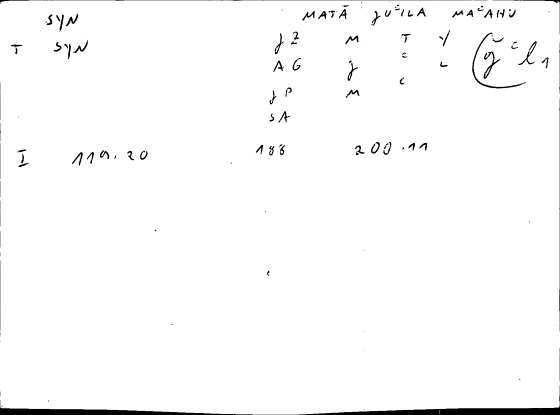 SYN MATĂ JUČILA MAČAHU
T SYN JZ M T Y
AG J C L
JP M C
SA
I 119.20 188 200.11